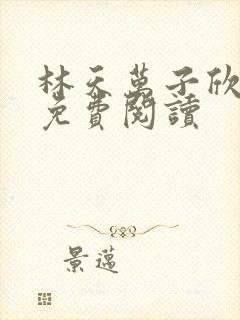 林天萬子欣
免費閱讀
景邁